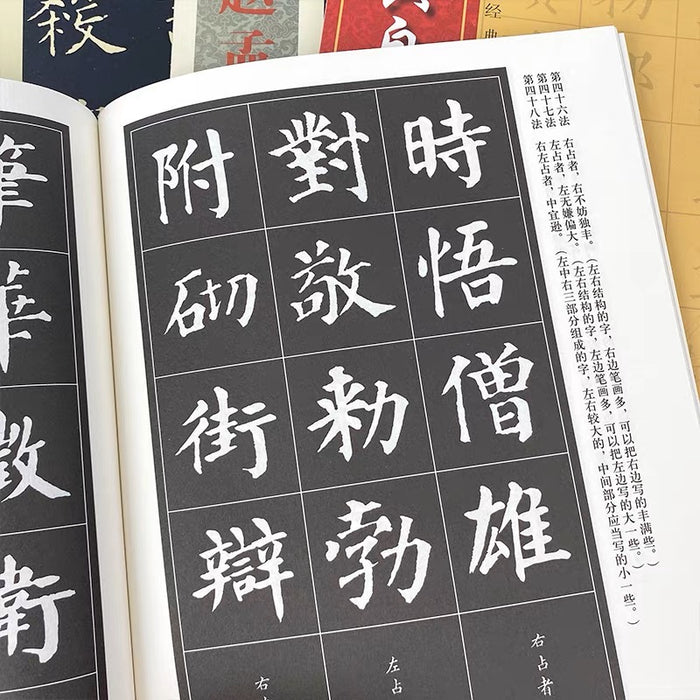 殺
趙孟
经典
第四十六法 右占者，右不妨独丰。（左右结构的字，右边笔画多，可以把右边写的丰满些。）
第四十七法 左占者，左无嫌偏大。（左右结构的字，左边笔画多，可以把左边写的大一些。）
第四十八法 右左占者，中宜逊。（左中右三部分组成的字，左右较大的，中间部分应当写的小一些。）
時悟僧雄
右占者
對敬勑勃
左占
附砌街
右
筆華徵衛